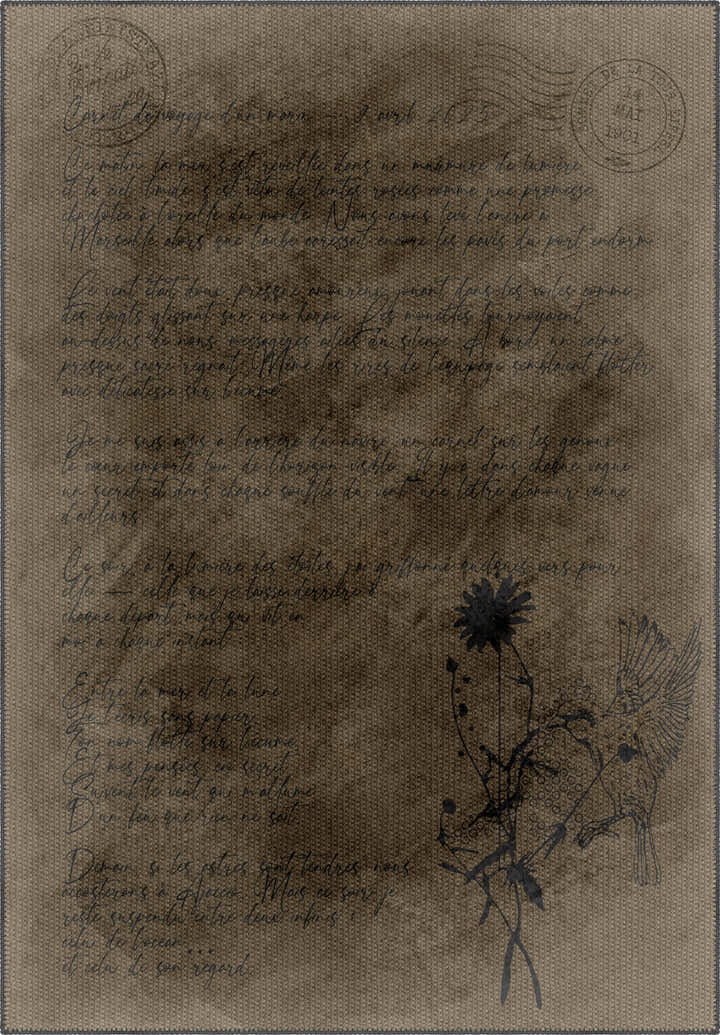 Carnet de voyage d'un marin — 9 avril 2025
Ce matin, la mer s'est réveillée dans un murmure de lumière
et le ciel, timide, s'est vêtu de teintes rosées comme une promesse
chuchotée à l'oreille du monde. Nous avons levé l'ancre à
Marseille alors que l'aube caressait encore les pavés du port endormi.
Le vent était doux, presque amoureux, jouant dans les voiles comme
des doigts glissant sur une harpe. Les mouettes tournoyaient
au-dessus de nous, messagères ailées du silence. À bord, un calme
presque sacré régnait. Même les rires de l'équipage semblaient flotter
avec délicatesse sur l'écume.
Je me suis assis à l'arrière du navire, un carnet sur les genoux
le cœur emporté loin de l'horizon visible. Il y a, dans chaque vague
un secret, et dans chaque souffle du vent, une lettre d'amour venue
d'ailleurs.
Ce soir, à la lumière des étoiles, j'ai griffonné quelques vers pour
elle — celle que je laisse derrière à
chaque départ, mais qui vit en
moi à chaque instant
Entre la mer et la lune
Je t'écris sans papier
Ton nom flotte sur l'écume
Et mes pensées, en secret
Suivent le vent qui m'allume
D'un feu que rien ne sait
Demain, si les astres sont tendres, nous
accosterons à Ajaccio. Mais ce soir, je
reste suspendu entre deux infinis :
celui de l'océan...
et celui de son regard.
DE LA TOUR
24
MAI
1901